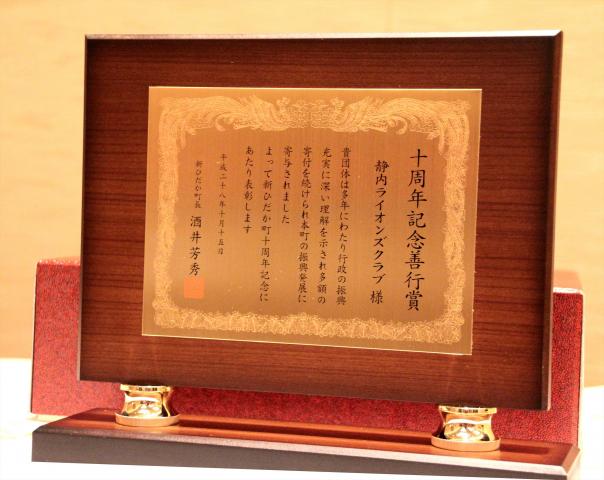 十周年記念善行賞
静内ライオンズクラブ 様
貴団体は多年にわたり行政の振興
充実に深い理解を示され多額の
寄付を続けられ本町の振興発展に
寄与されました
よって新ひだか町十周年記念に
あたり表彰します
平成二十八年十月十五日
新ひだか町長 酒井芳秀